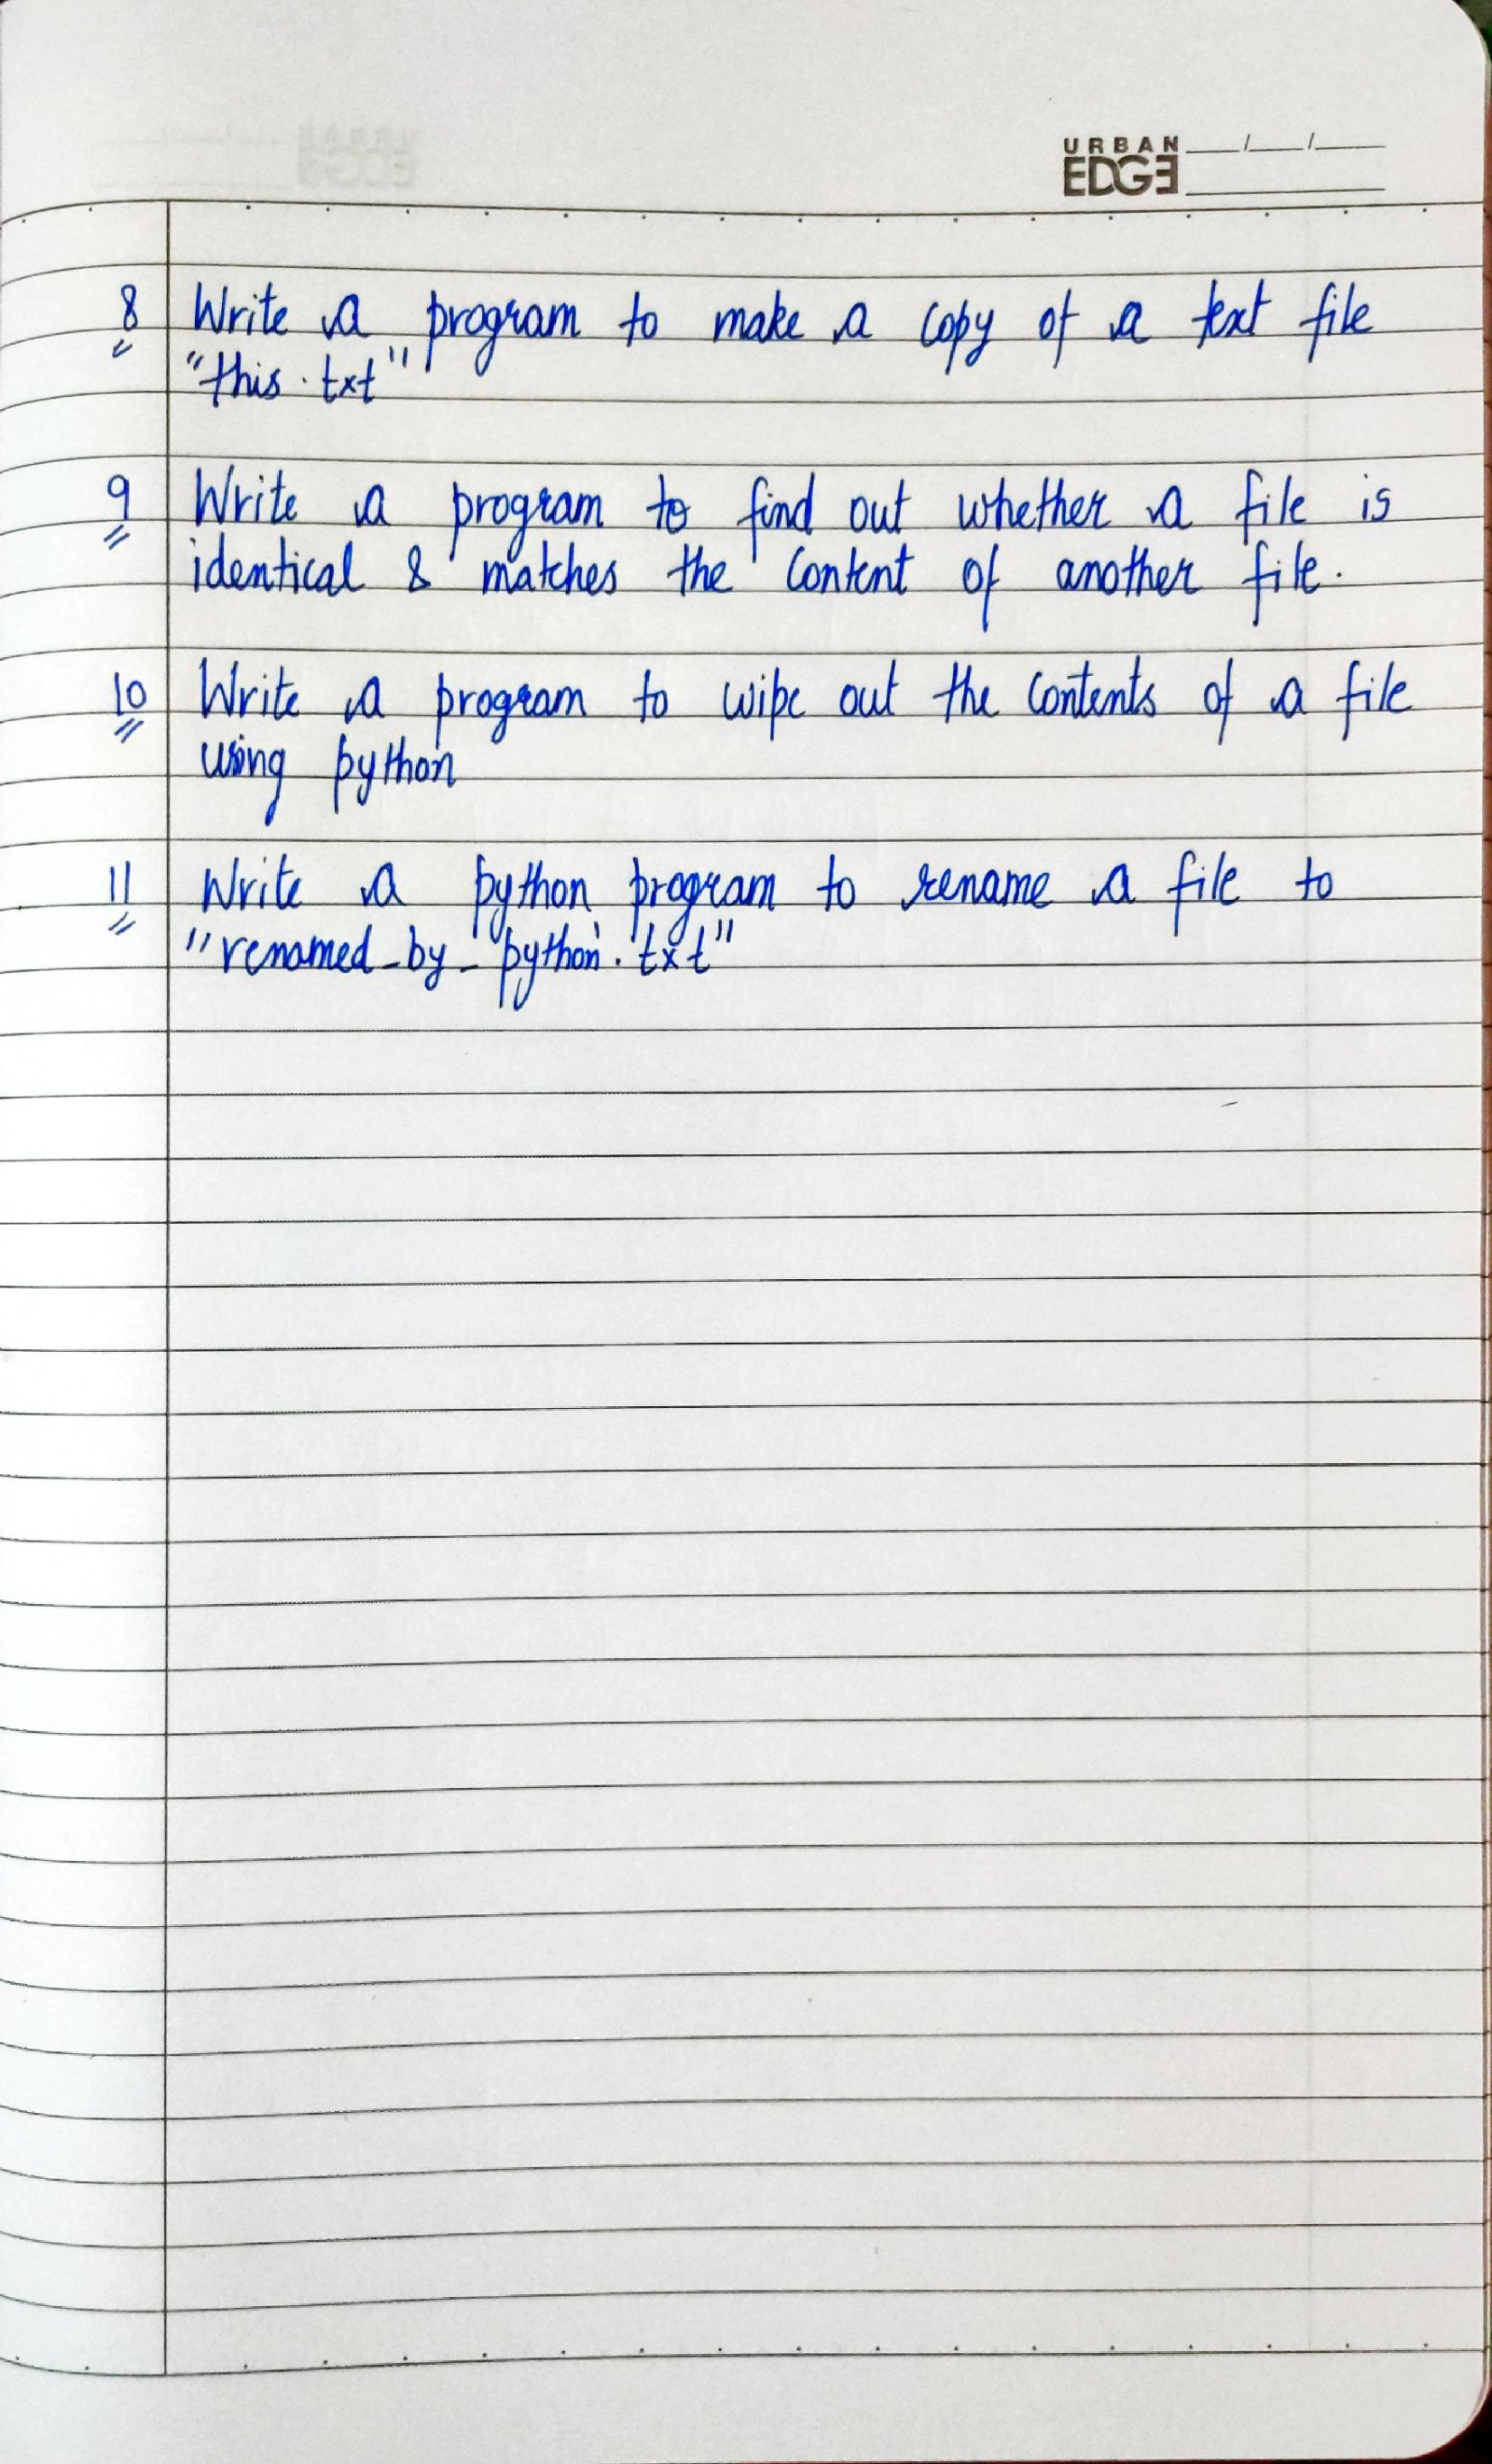 URBAN
EDGE
8 Write a program to make a copy of a text file
"this.txt"
9 Write a program to find out whether a file is
identical & matches the content of another file.
10 Write a program to wipe out the contents of a file
using python
11 Write a python program to rename a file to
"renamed_by_python.txt"